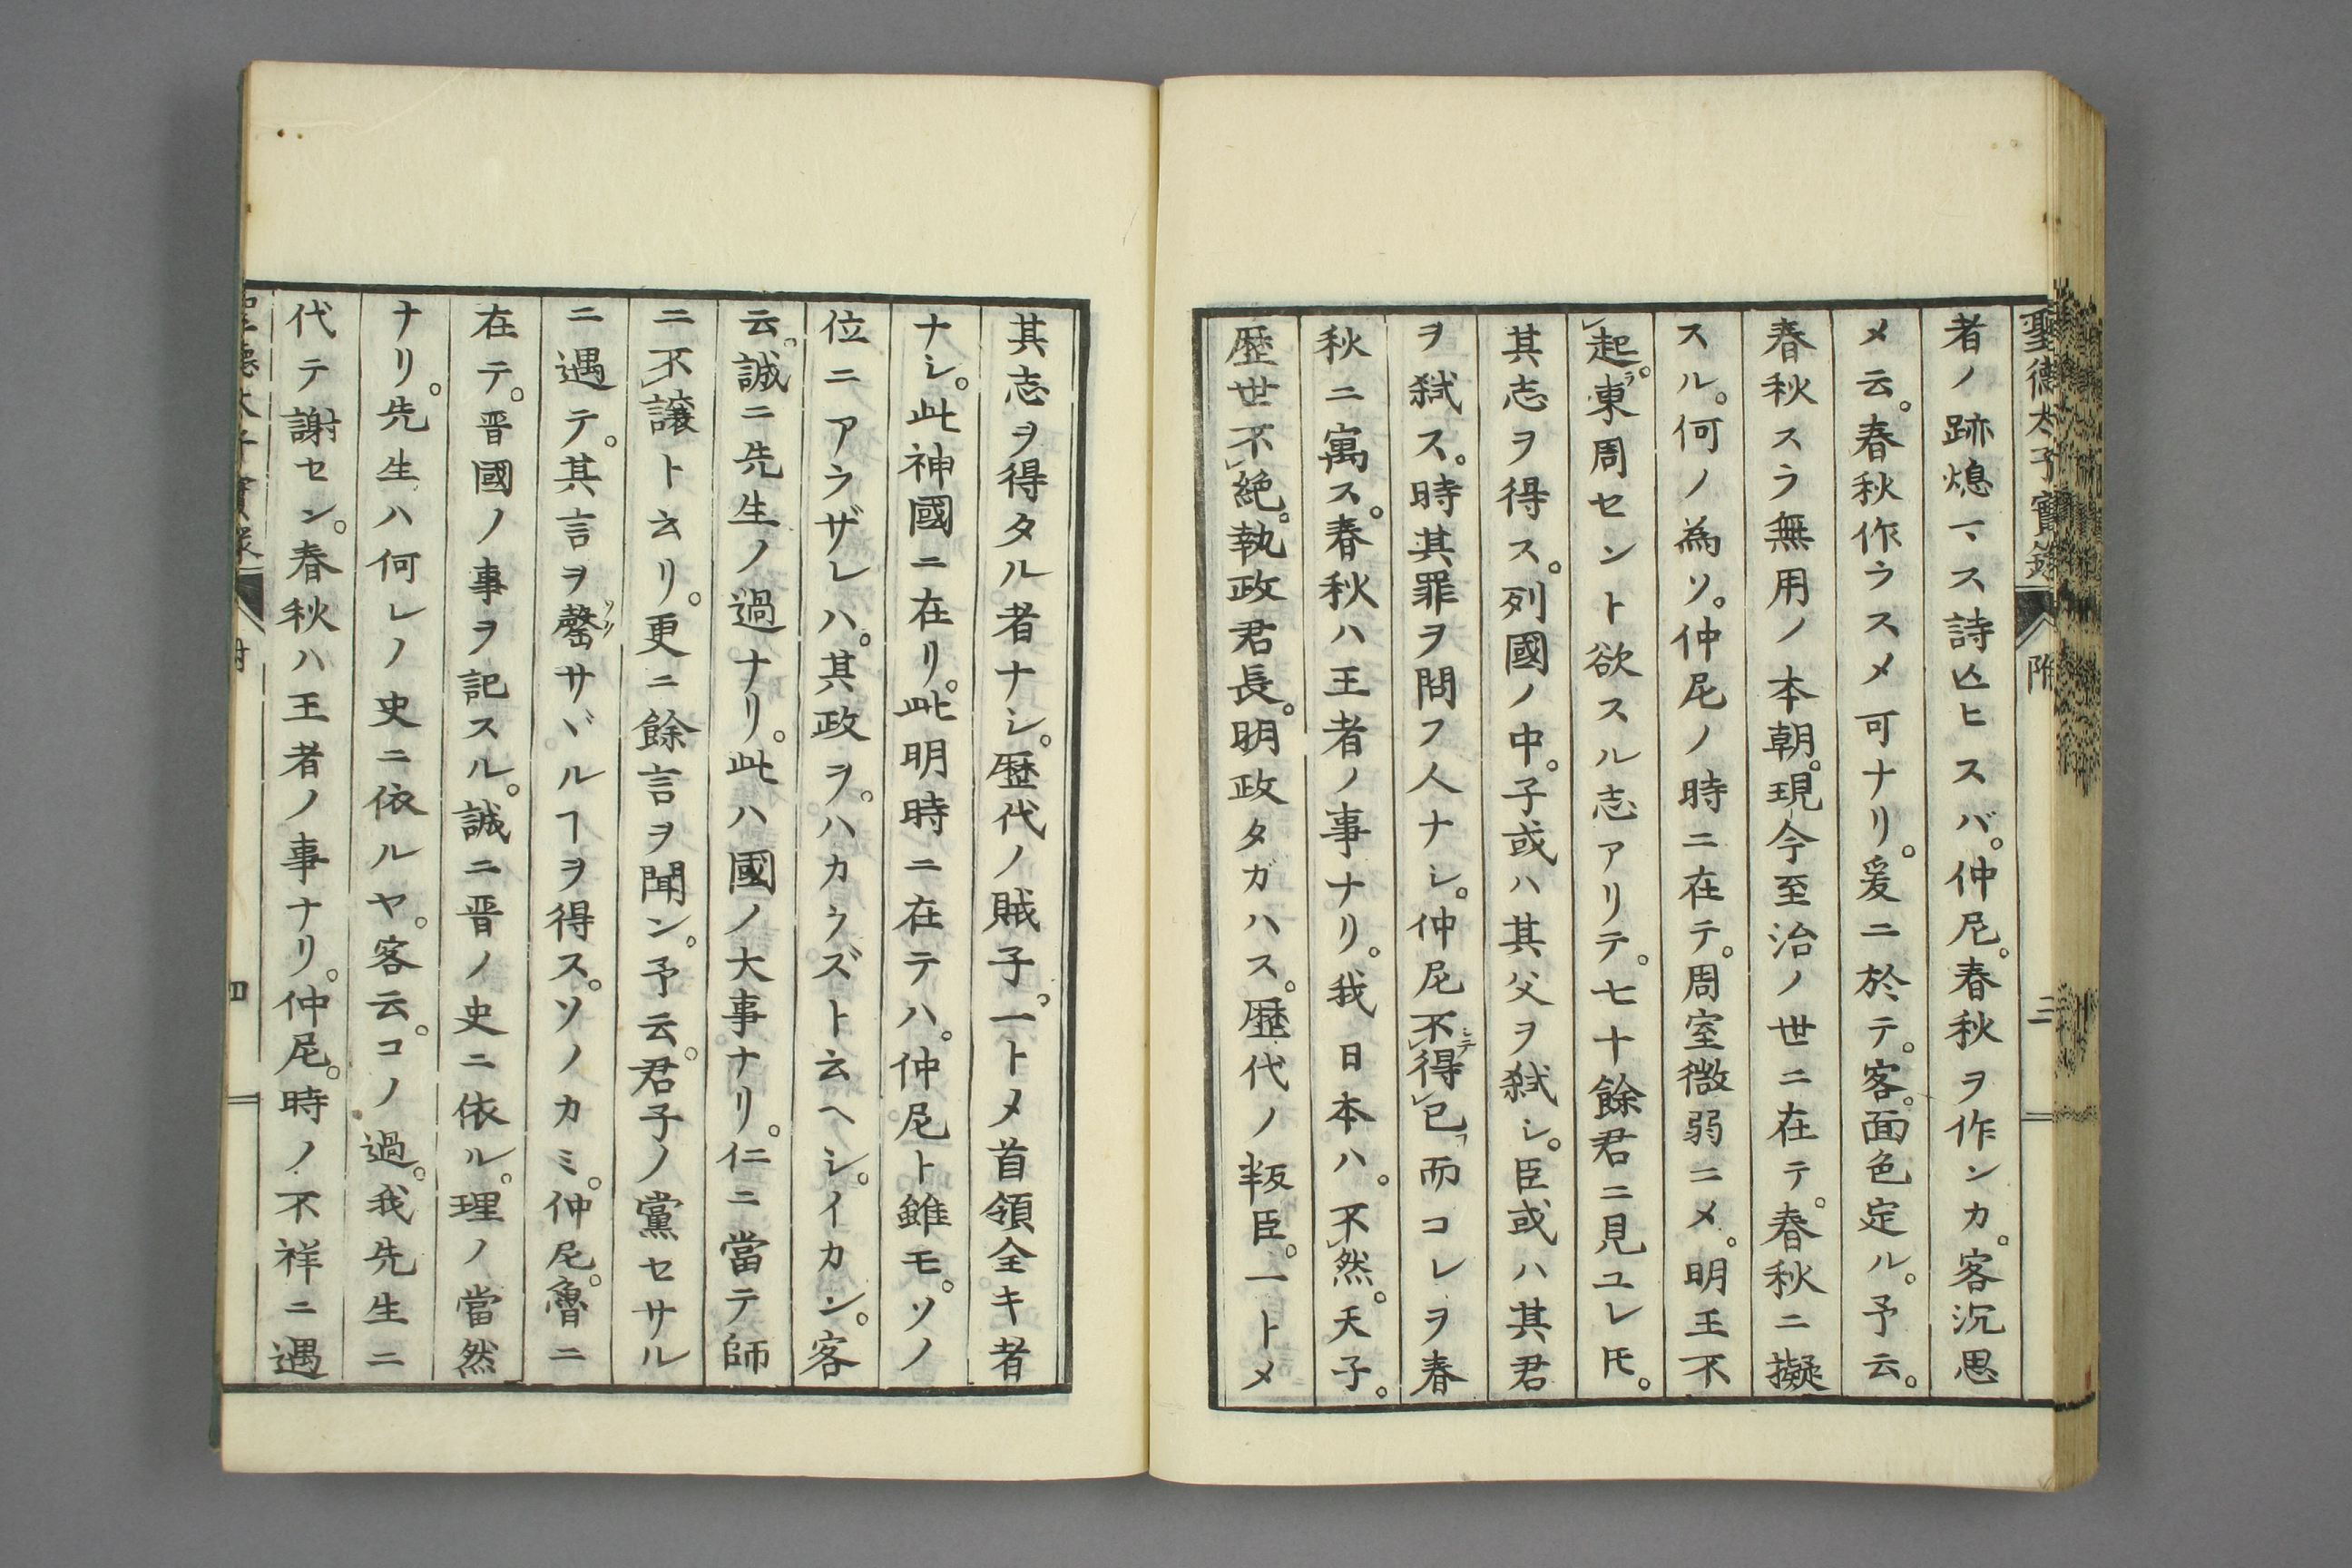 聖德太子實錄 附 三
者ノ跡熄マス詩亾ヒスバ。仲尼。春秋ヲ作ンカ。客沉思
メ云。春秋作ウスメ可ナリ。爰ニ於テ。客。面色定ル。予云。
春秋スラ無用ノ本朝。現今至治ノ世ニ在テ。春秋ニ擬
スル。何ノ為ソ。仲尼ノ時ニ在テ。周室微弱ニメ。明王不
レ起ラ。東周セント欲スル志アリテ。七十餘君ニ見ユレ𪜈。
其志ヲ得ス。列國ノ中。子或ハ其父ヲ弒シ。臣或ハ其君
ヲ弒ス。時其罪ヲ問フ人ナシ。仲尼不レ得シテレ已フ而コレヲ春
秋ニ寓ス。春秋ハ王者ノ事ナリ。我日本ハ。不レ然。天子。
歷世不レ絶。執政君長。明政タガハス。歷代ノ叛臣。一トメ
其志ヲ得タル者ナシ。歷代ノ賊子。一トメ首領全キ者
ナシ。此神國ニ在リ。此明時ニ在テハ。仲尼ト雖モ。ソノ
位ニアラザレハ。其政ヲ。ハカラズト云ヘシ。イカン。客
云。誠ニ先生ノ過ナリ。此ハ國ノ大事ナリ。仁ニ當テ師
ニ不レ譲ト云リ。更ニ餘言ヲ聞ン。予云。君子ノ黨セサル
ニ遇テ。其言ヲ罄サヾルヿヲ得ス。ソノカミ。仲尼。魯ニ
在テ。晋國ノ事ヲ記スル。誠ニ晋ノ史ニ依ル。理ノ當然
ナリ。先生ハ何レノ史ニ依ルヤ。客云。コノ過。我先生ニ
代テ謝セン。春秋ハ王者ノ事ナリ。仲尼。時ノ不祥ニ遇